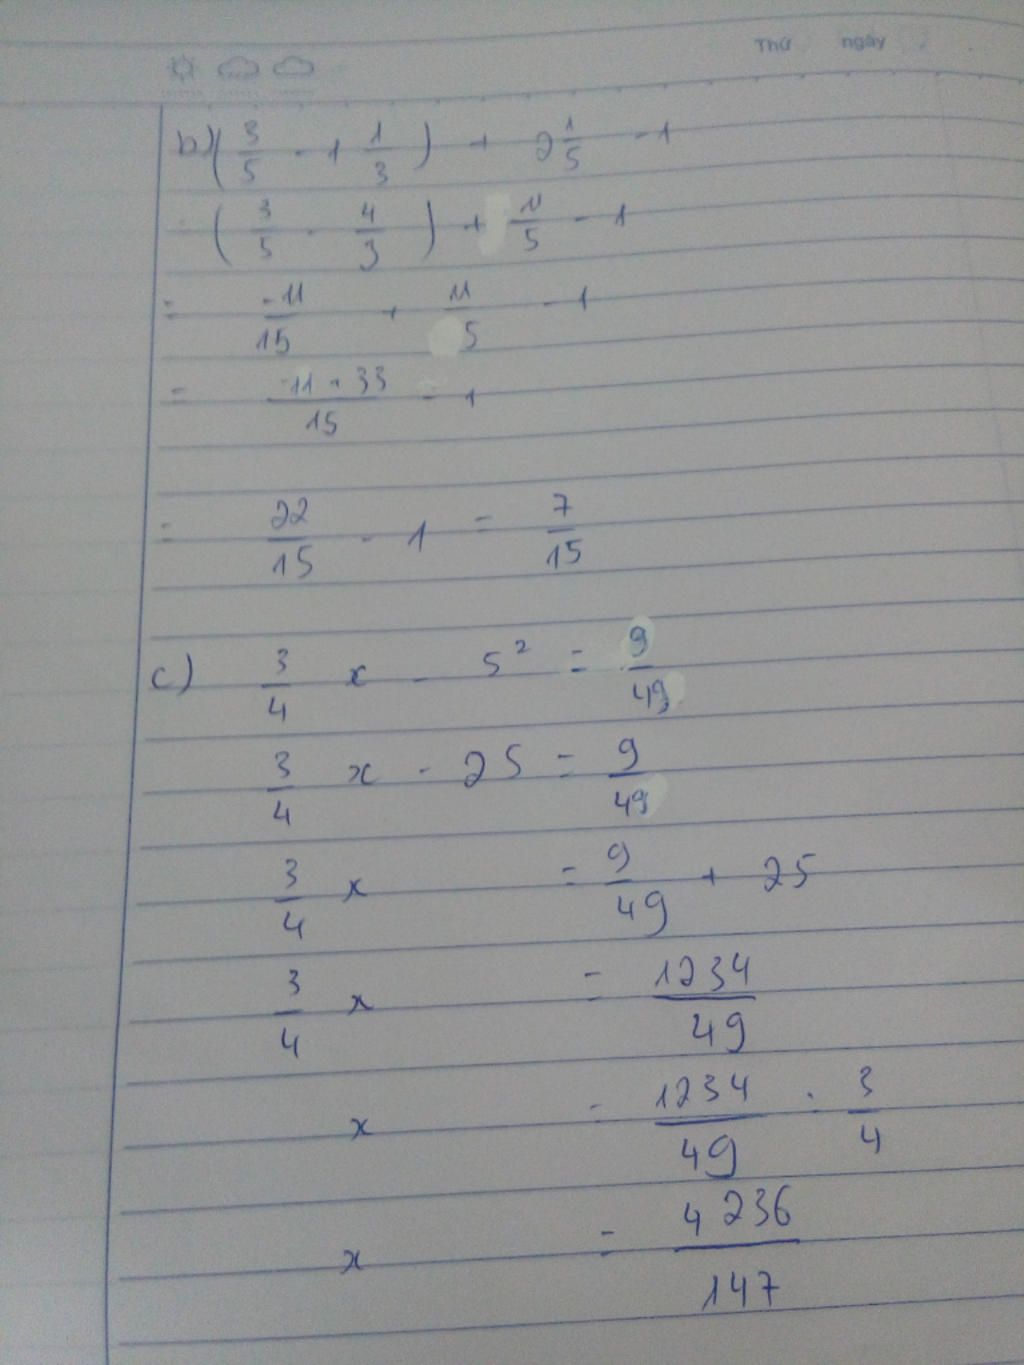 Thứ ngày
b) ( 3/5 - 1 1/3 ) + 2 1/5 - 1
= ( 3/5 - 4/3 ) + 11/5 - 1
= -11/15 + 11/5 - 1
= -11 + 33/15 - 1
= 22/15 - 1 = 7/15
c) 3/4 x - 5² = 9/49
3/4 x - 25 = 9/49
3/4 x = 9/49 + 25
3/4 x = 1234/49
x = 1234/49 : 3/4
x = 4236/147